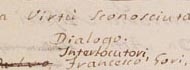 Virtù Sconosciuta
Dialogo.
Interlocutori.
Francesco Gori